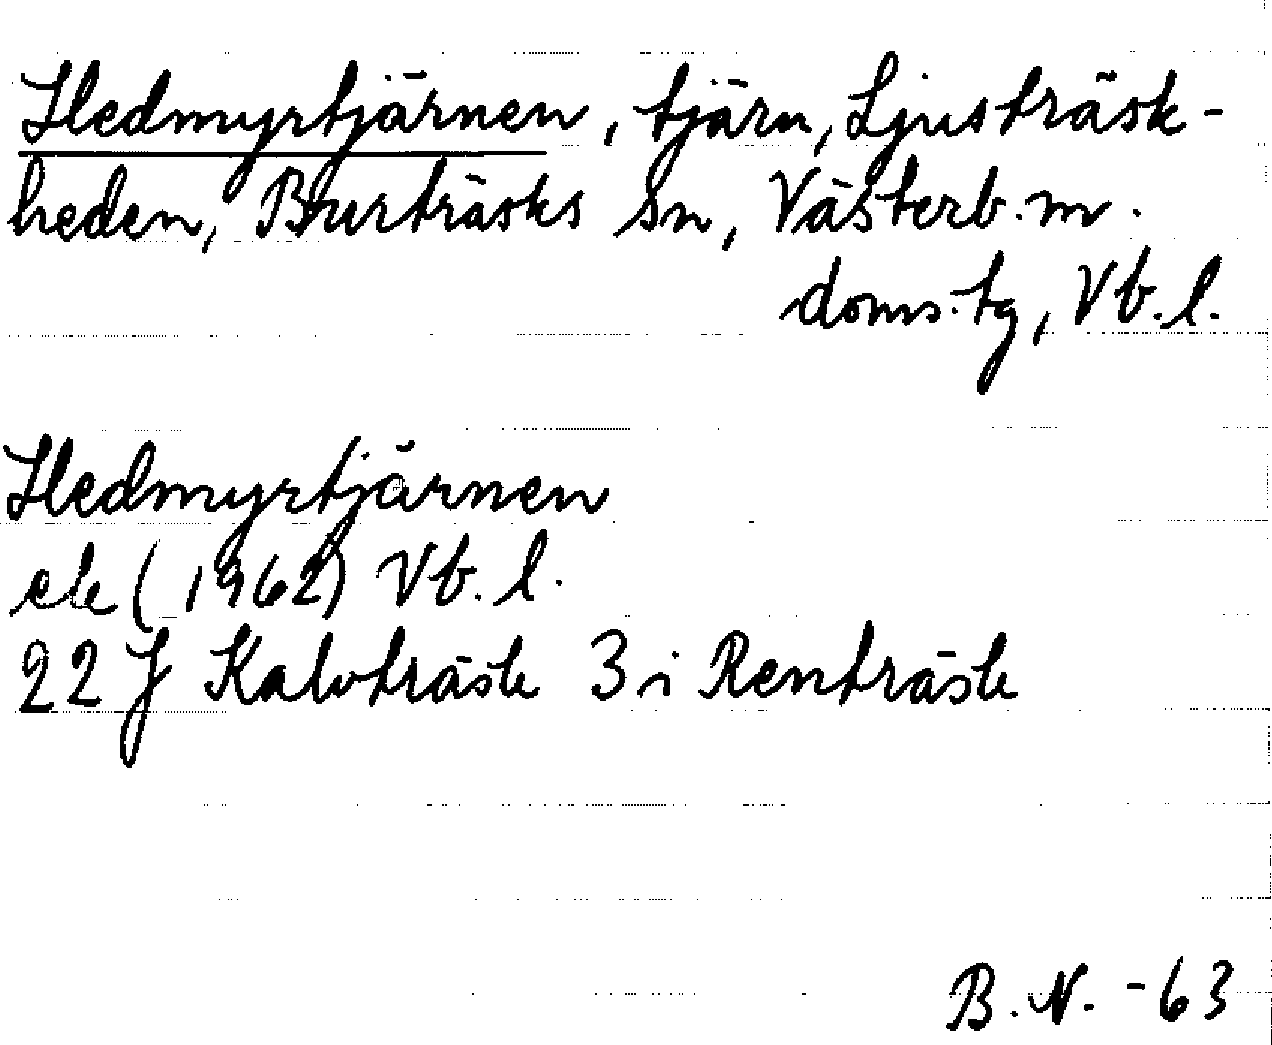 Hedmyrtjärnen, tjärn, Ljusträsk-
heden, Burträsks sn, Västerb. m.
doms. tg, Vb. l.
Hedmyrtjärnen
ek (1962) Vb. l.
22 J Kalvträsk 3 i Renträsk
B. N. -63